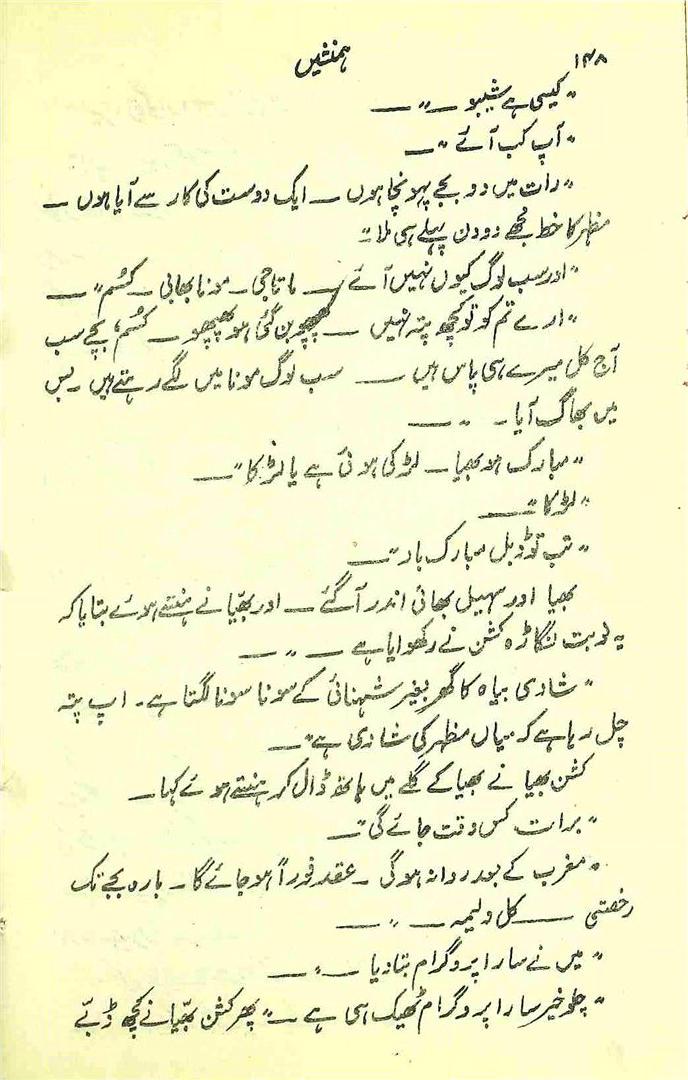 ۱۴۸ ہمنشیں
"کیسی ہے شیبو — " —
"آپ کب آئے " —
"رات میں دو بجے پہونچا ہوں — ایک دوست کی کار سے آیا ہوں —
مظہر کا خط مجھے دو دن پہلے ہی ملا"
"اور سب لوگ کیوں نہیں آئے — ماتاجی — مونا بھابی — کسُم" —
"ارے تم کو تو کچھ پتہ نہیں — پھپھو بن گئی ہو پھپھو — کسُم، بچے سب
آج کل میرے ہی پاس ہیں — سب لوگ مونا میں لگے رہتے ہیں بس
میں بھاگ آیا — " —
"مبارک ہو بھیا — لڑکی ہوئی ہے یا لڑکا" —
"لڑکا" —
"تب تو ڈبل مبارک باد" —
بھیا اور سہیل بھائی اندر آگئے — اور بھیّا نے ہنستے ہوئے بتایا کہ
یہ نوبت نگاڑہ کشن نے رکھوایا ہے — " —
"شادی بیاہ کا گھر بغیر شہنائی کے سونا سونا لگتا ہے۔ اب پتہ
چل رہا ہے کہ میاں مظہر کی شادی ہے" —
کشن بھیا نے بھیا کے گلے میں ہاتھ ڈال کر ہنستے ہوئے کہا —
"برات کس وقت جائے گی" —
"مغرب کے بعد روانہ ہوگی — عقد فوراً ہو جائے گا — بارہ بجے تک
رخصتی — کل ولیمہ — " —
"میں نے سارا پروگرام بتادیا — " —
"چلو خیر سارا پروگرام ٹھیک ہی ہے — " پھر کشن بھیّا نے کچھ ڈبّے